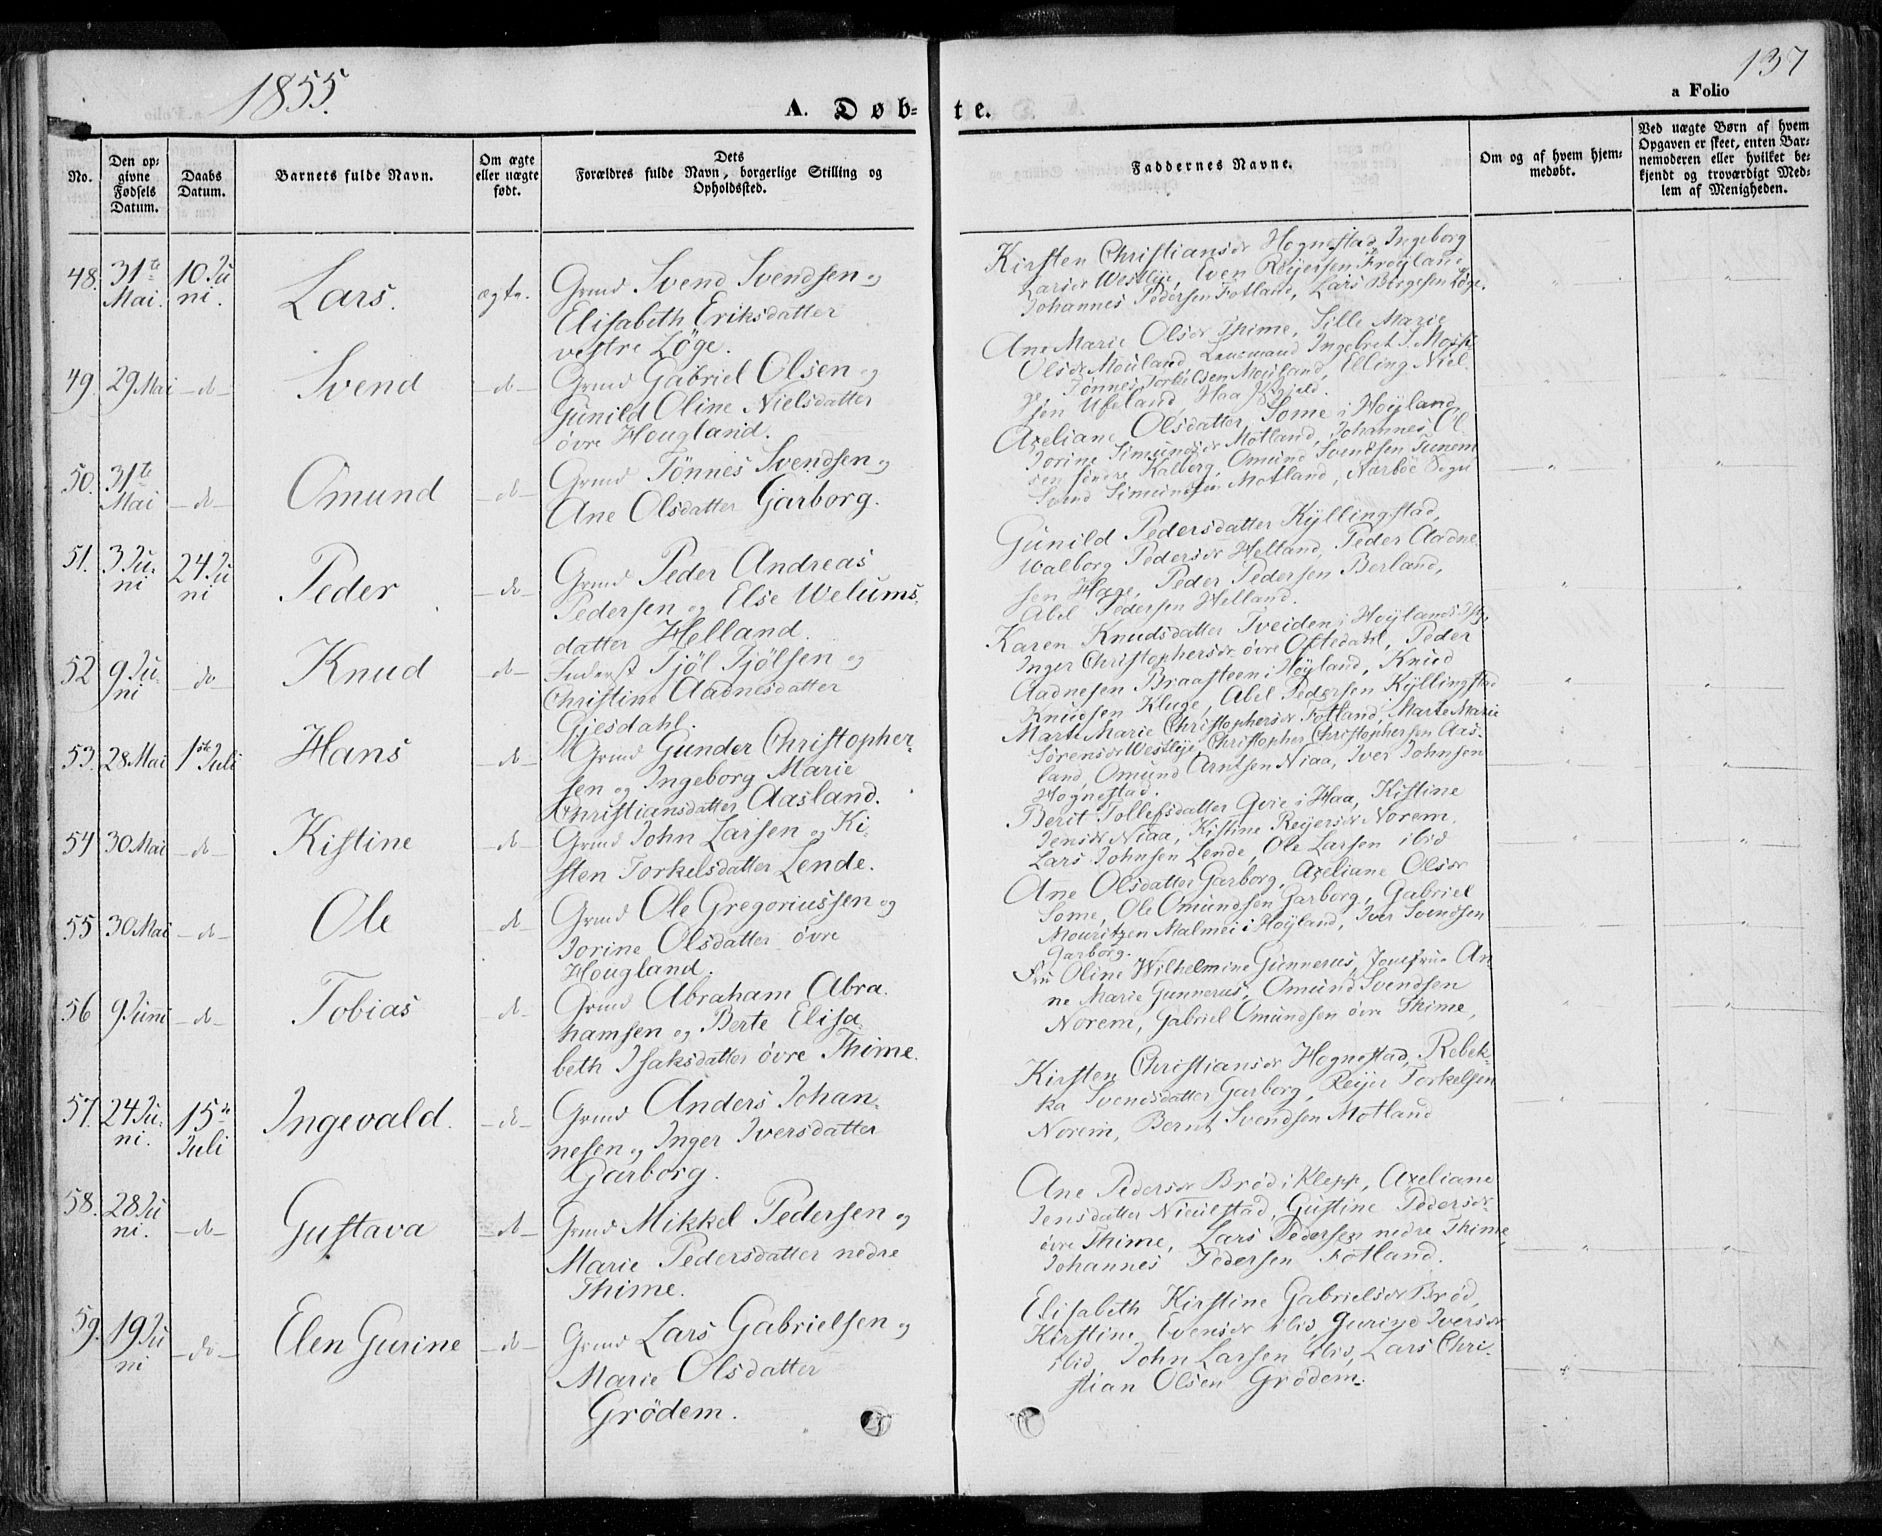 1855.
137
a Folio
A. Døb- te.
No.
Den op-
givne
Fødsels
Datum.
Daabs
Datum.
Barnets fulde Navn.
Om ægte
eller uægte
født.
Dets
Forældres fulde Navn, borgerlige Stilling og
Opholdssted.
Faddernes Navne.
Om og af hvem hjem-
medøbt.
Ved uægte Børn af hvem
Opgaven er skeet, enten Bar-
nemoderen eller hvilket be-
kjendt og troværdigt Med-
lem af Menigheden.
48. 31te Mai. 10 Ju ni. Lars. ægte.
Grmd Svend Svendsen og
Elisabeth Eriksdatter
vestre Löge.
Kirsten Christiansdr Hognestad, Ingeborg
Larsdr Westlye, Even Reyersen Fröyland
Johannes Pedersen Fotland, Lars Börgesen Löge.
49. 29 Mai -do- Svend -do-
Grmd Gabriel Olsen og
Gunild Oline Nielsdatter
övre Hougland.
Ane Marie Olsdr Thime, Sille Marie
Olsdr Mouland, Lensmand Ingebret S. Mossi
ge, Tönnes Torkildsen Mouland, Elling Niel-
sen Ueland, Haa Pgjeld.
50. 31te Mai -do- Omund -do-
Grmd Tönnes Svendsen og
Ane Olsdatter Garborg.
Axeliane Olsdatter Some i Höyland,
Jorine Simunsdr Motland, Johannes Ol
sen söndre Kalberg, Omund Svendsen Tunem
Svend Simundsen Motland, Nærböe Sogn
51. 3 Ju- ni 24 Ju ni Peder -do-
Grmd Peder Andreas
Pedersen og Else Welums-
datter Helland.
Gunild Pedersdatter Kyllingstad,
Walborg Pedersdr Helland, Peder Aadne-
sen Hage, Peder Pedersen Berland,
Abel Pedersen Helland.
52 9 Ju- ni -do- Knud do-
Inderst Tjöl Tjölsen og
Christine Aadnesdatter
Gjesdahl.
Karen Knudsdatter Tveiden i Höylands Pgj,
Inger Christophersdr övre Oftedahl, Peder
Aadnesen Braasteen i Höyland, Knud
Knudsen Kluge, Abel Pedersen Kyllingstad
53. 28 Mai 1ste Juli Hans -do-
Grmd Gunder Christopher-
sen og Ingeborg Marie
Christiansdatter Aasland.
Marte Marie Christophersdr Fotland, Marte Marie
Sörensdr Westlye, Christopher Christophersen Aas-
land, Omund Arntsen Niaa, Iver Johnsen
Hognestad.
54 30 Mai -do- Kistine -do-
Grmd John Larsen og Ki-
sten Torkelsdatter Lende.
Berit Tollefsdatter Qvie i Haa, Kistine
Jensdr Niaa, Kistine Reyersdr Norem,
Lars Johnsen Lende, Ole Larsen ibid
55 30 Mai -do- Ole -do-
Grmd Ole Gregoriussen og
Jorine Olsdatter övre
Hougland.
Ane Olsdatter Garborg, Axeliane Olsdr
Some, Ole Omundsen Garborg, Gabriel
Mouritzen Malmei i Höyland, Iver Svendsen
Garborg.
56 9 Juni -do- Tobias -do-
Grmd Abraham Abra-
hamsen og Berte Elisa-
beth Isaksdatter övre Thime.
Fru Oline Wilhelmine Gunnerus, Jomfrue An-
ne Marie Gunnerus, Omund Svendsen
Norem, Gabriel Omundsen övre Thime,
57. 24 Ju- ni. 15de Juli Ingevald. -do-
Grmd Anders Johan-
nesen og Inger Iversdatter
Garborg.
Kirsten Christiansdr Hognestad, Rebek-
ka Svendsdatter Garborg, Reyer Torkelsen
Norem, Bernt Svendsen Motland
58. 28 Ju ni. -do- Gustava -do-
Grmd Mikkel Pedersen og
Marie Pedersdatter nedre
Thime.
Ane Pedersdr Bröd i Klepp, Axeliane
Jensdatter Njeulstad, Gustine Pedersdr
övre Thime, Lars Pedersen nedre Thime,
Johannes Pedersen Fotland.
59. 19 Ju ni -do- Elen Gurine -do-
Grmd Lars Gabrielsen og
Marie Olsdatter
Grödem.
Elisabeth Kirstine Gabrielsdr Bröd,
Kirstine Evensdr ibid, Gurind Iversdr
ibid, John Larsen ibid, Lars Chri-
stian Olsen Grödem.